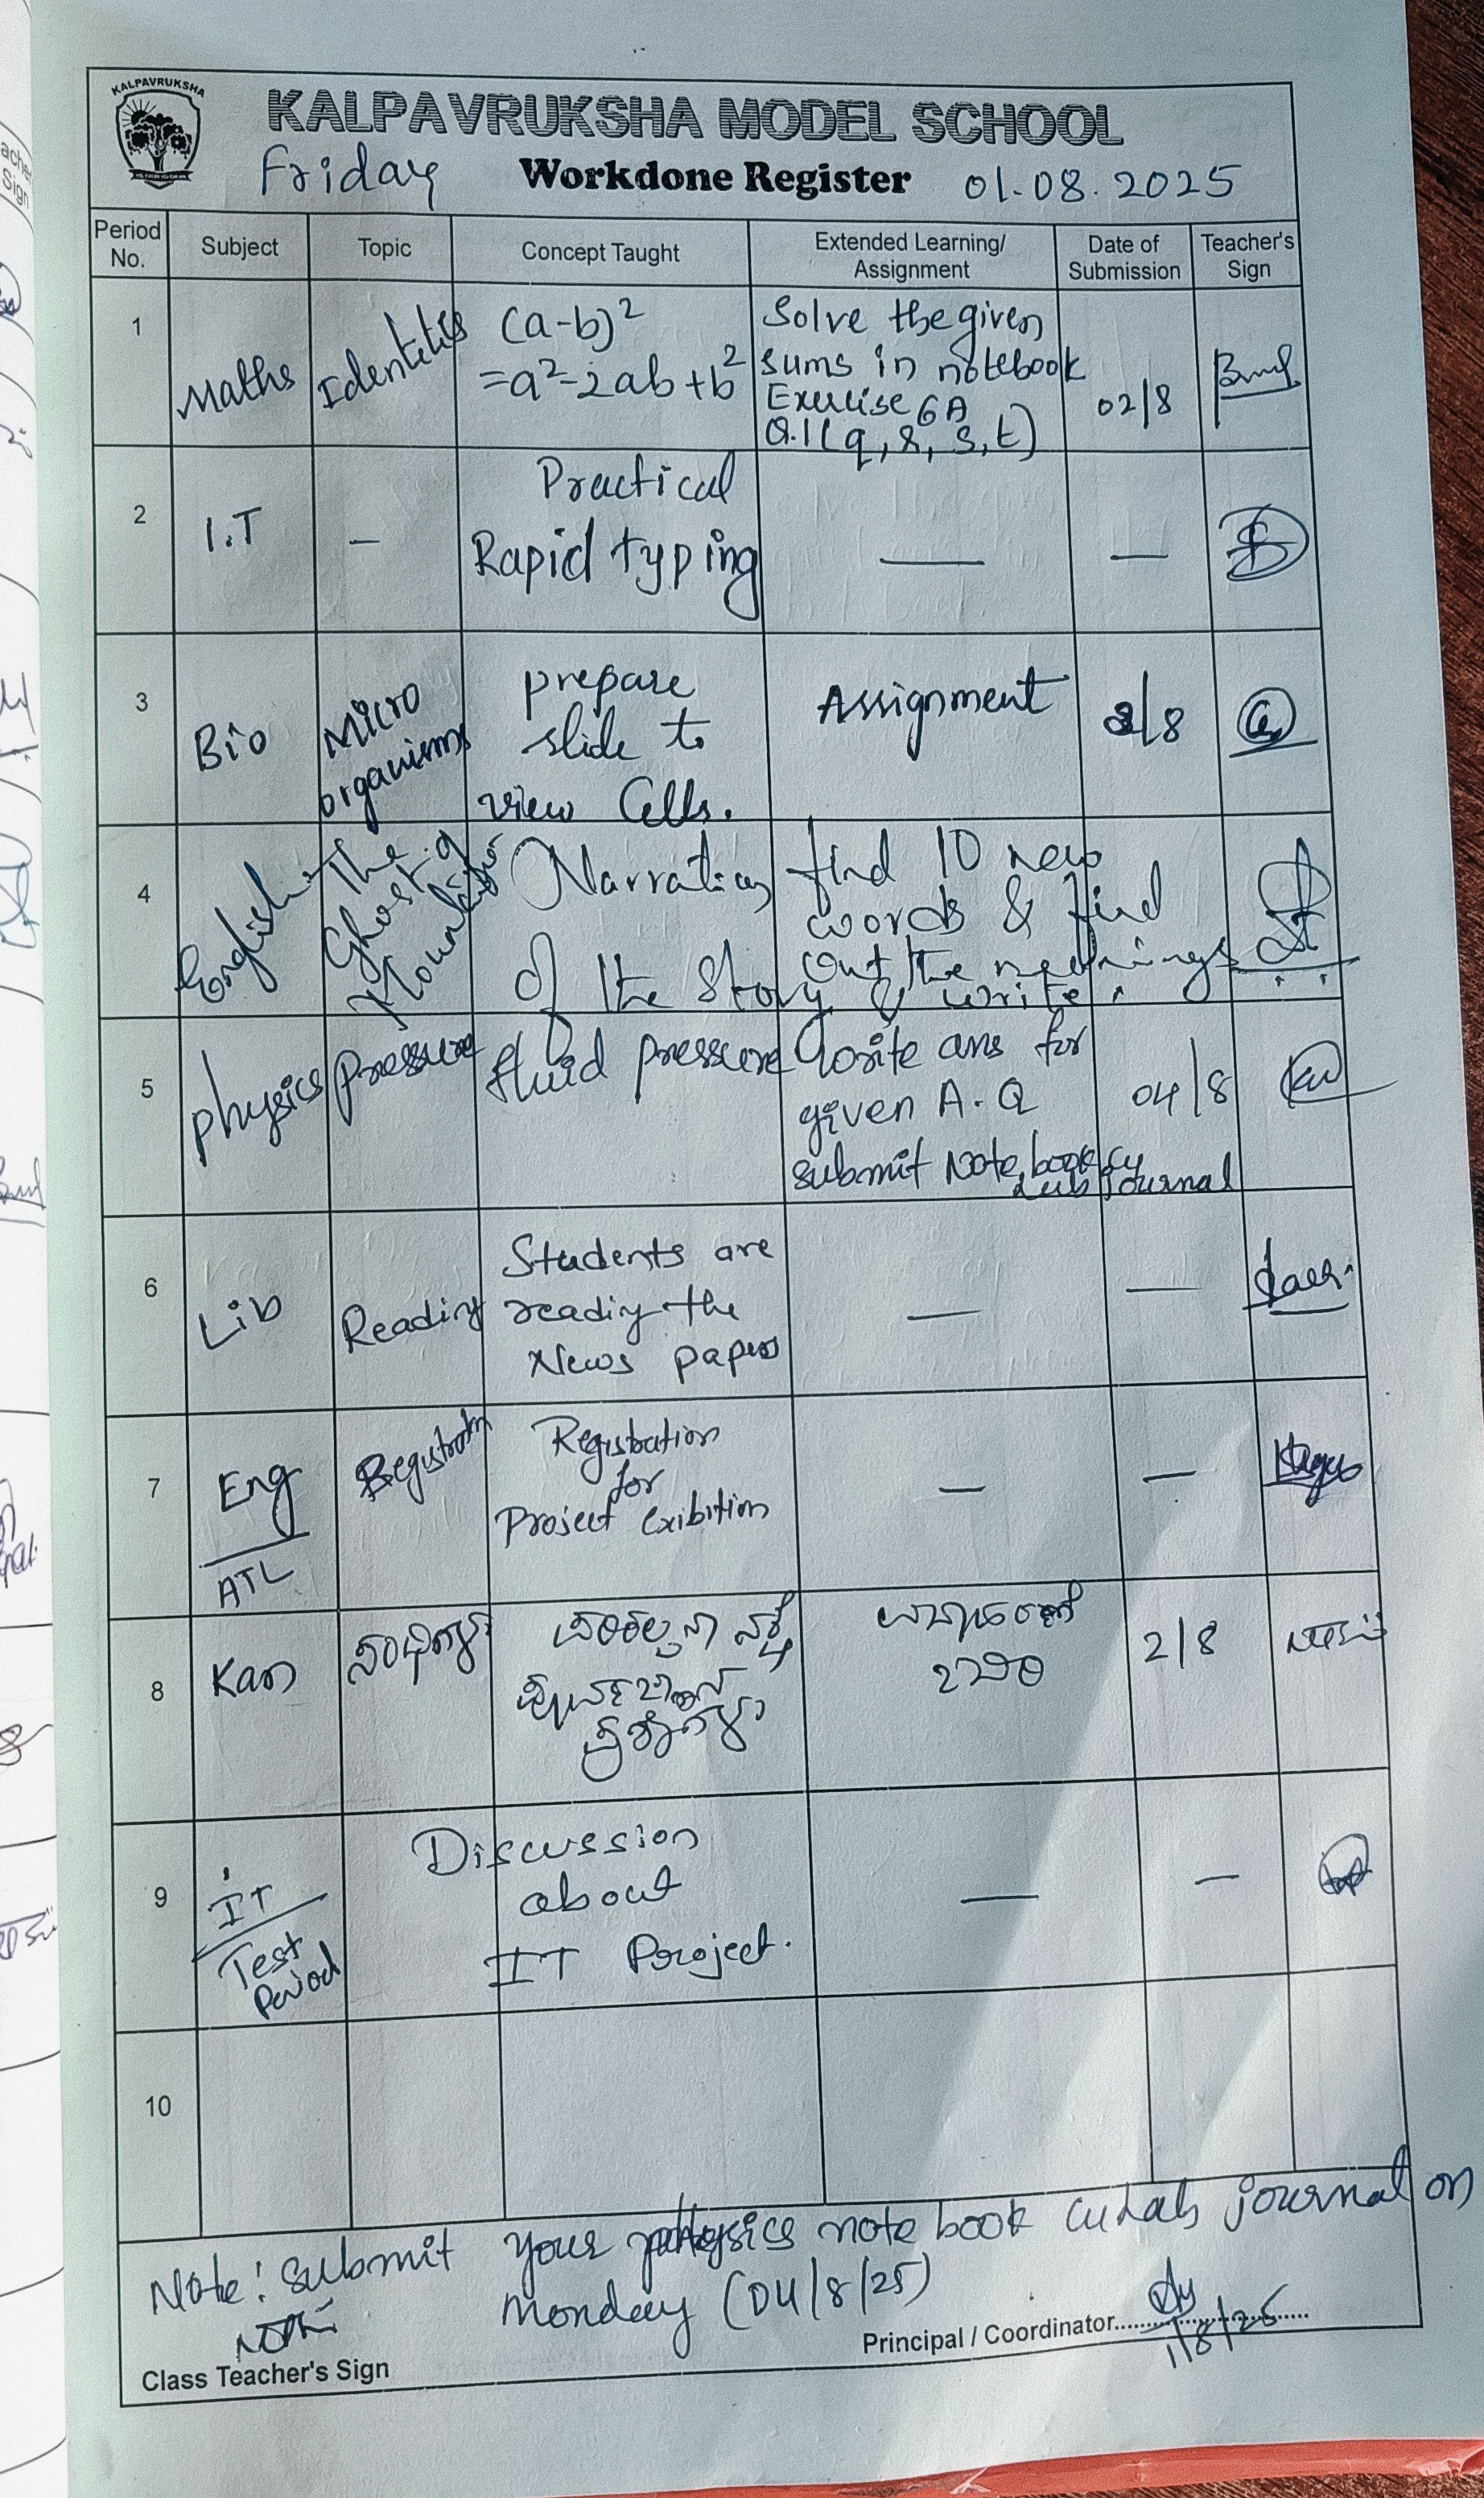 KALPAVRUKSHA
KALPAVRUKSHA MODEL SCHOOL
Friday Workdone Register 01.08.2025
Period No. Subject Topic Concept Taught Extended Learning/ Assignment Date of Submission Teacher's Sign
1 Maths Identities (a-b)²
=a²-2ab+b²
Solve the given
sums in notebook
Exercise 6A
Q.1(q,r,s,t)
02/8
2 I.T - Practical
Rapid typing
— —
3 Bio Micro
organisms
prepare
slide to
view Cells.
Assignment /8
4 English The
Ghost of
Mountain
Narration
of the story
find 10 new
words & find
out the meanings
& write.
5 physics pressure fluid pressure write ans for
given A.Q
submit Note book
Lab journal
04/8
6 Lib Reading Students are
reading the
News papers
— —
7 Eng
ATL
Registration
for
Project exibition
— —
8 Kan 2/8
9 IT
Test
Period
Discussion
about
IT Project.
— —
10
Note: submit your physics note book lab journal on
monday (04/8/25)
Class Teacher's Sign
Principal / Coordinator
1/8/25